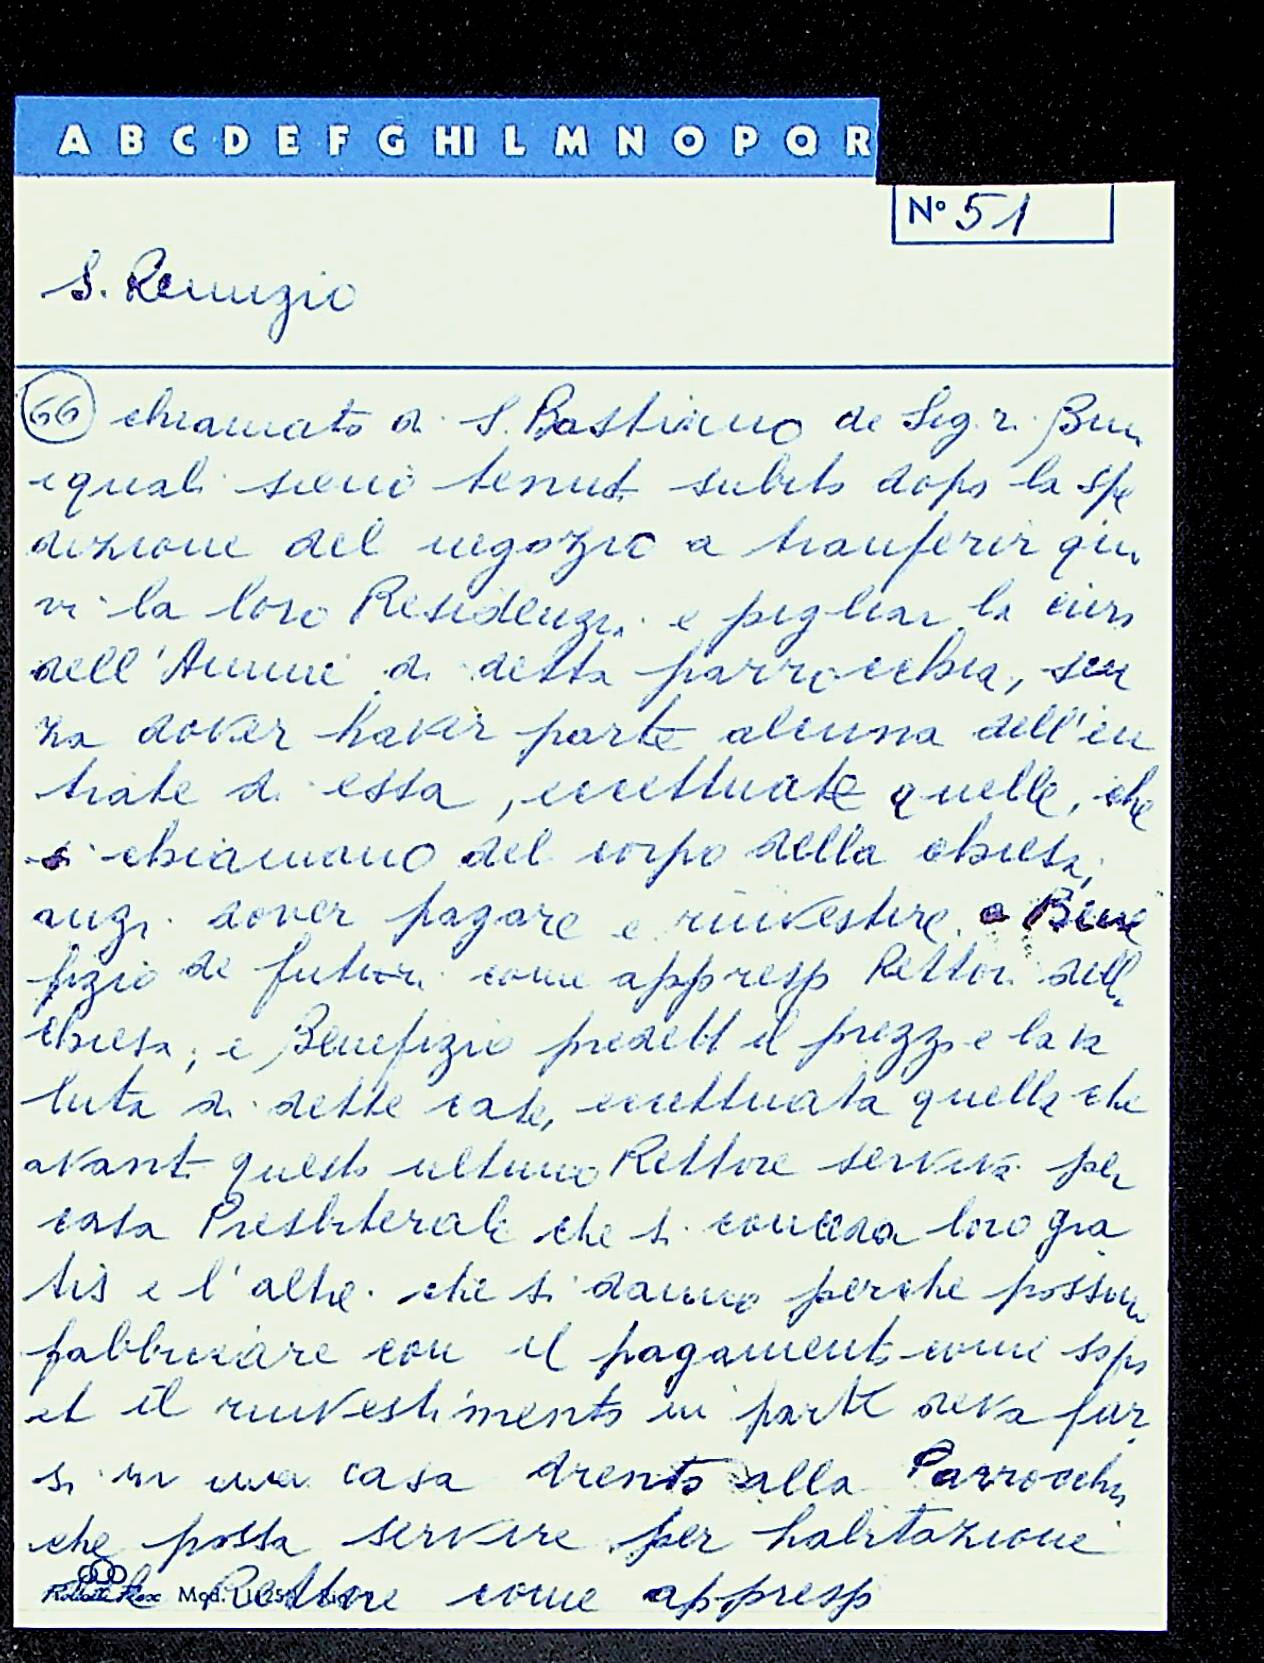 A B C D E F G HI L M N O P Q R
Nº 51
S. Remigio
66 chiamato di S. Bastiano de Sig.ri Bini
i quali sieno tenuti subito dopo la spe
dizione del negozio a transferir qui
vi la loro Residenza e pigliar la cura
dell'Anime di detta parrocchia, sen
za dover haver parte alcuna dell'en
trate di essa, eccettuate quelle, che
si chiamano del corpo della chiesa,
anzi dover pagare e rinvestire a Bene
fizio de futuri come appresso Rettori della
chiesa, e Benefizio predetti il prezzo e la va
luta di dette case, eccettuata quella che
avanti questo ultimo Rettore serviva per
casa Presbiterale che si conceda loro gra
tis e l'altre che si danno perche possino
fabbricare con il pagamento come sopra
et il rinvestimento in parte deva far
si in una casa drento alla Parrocchia
che possa servire per habitazione
Rettore come appresso